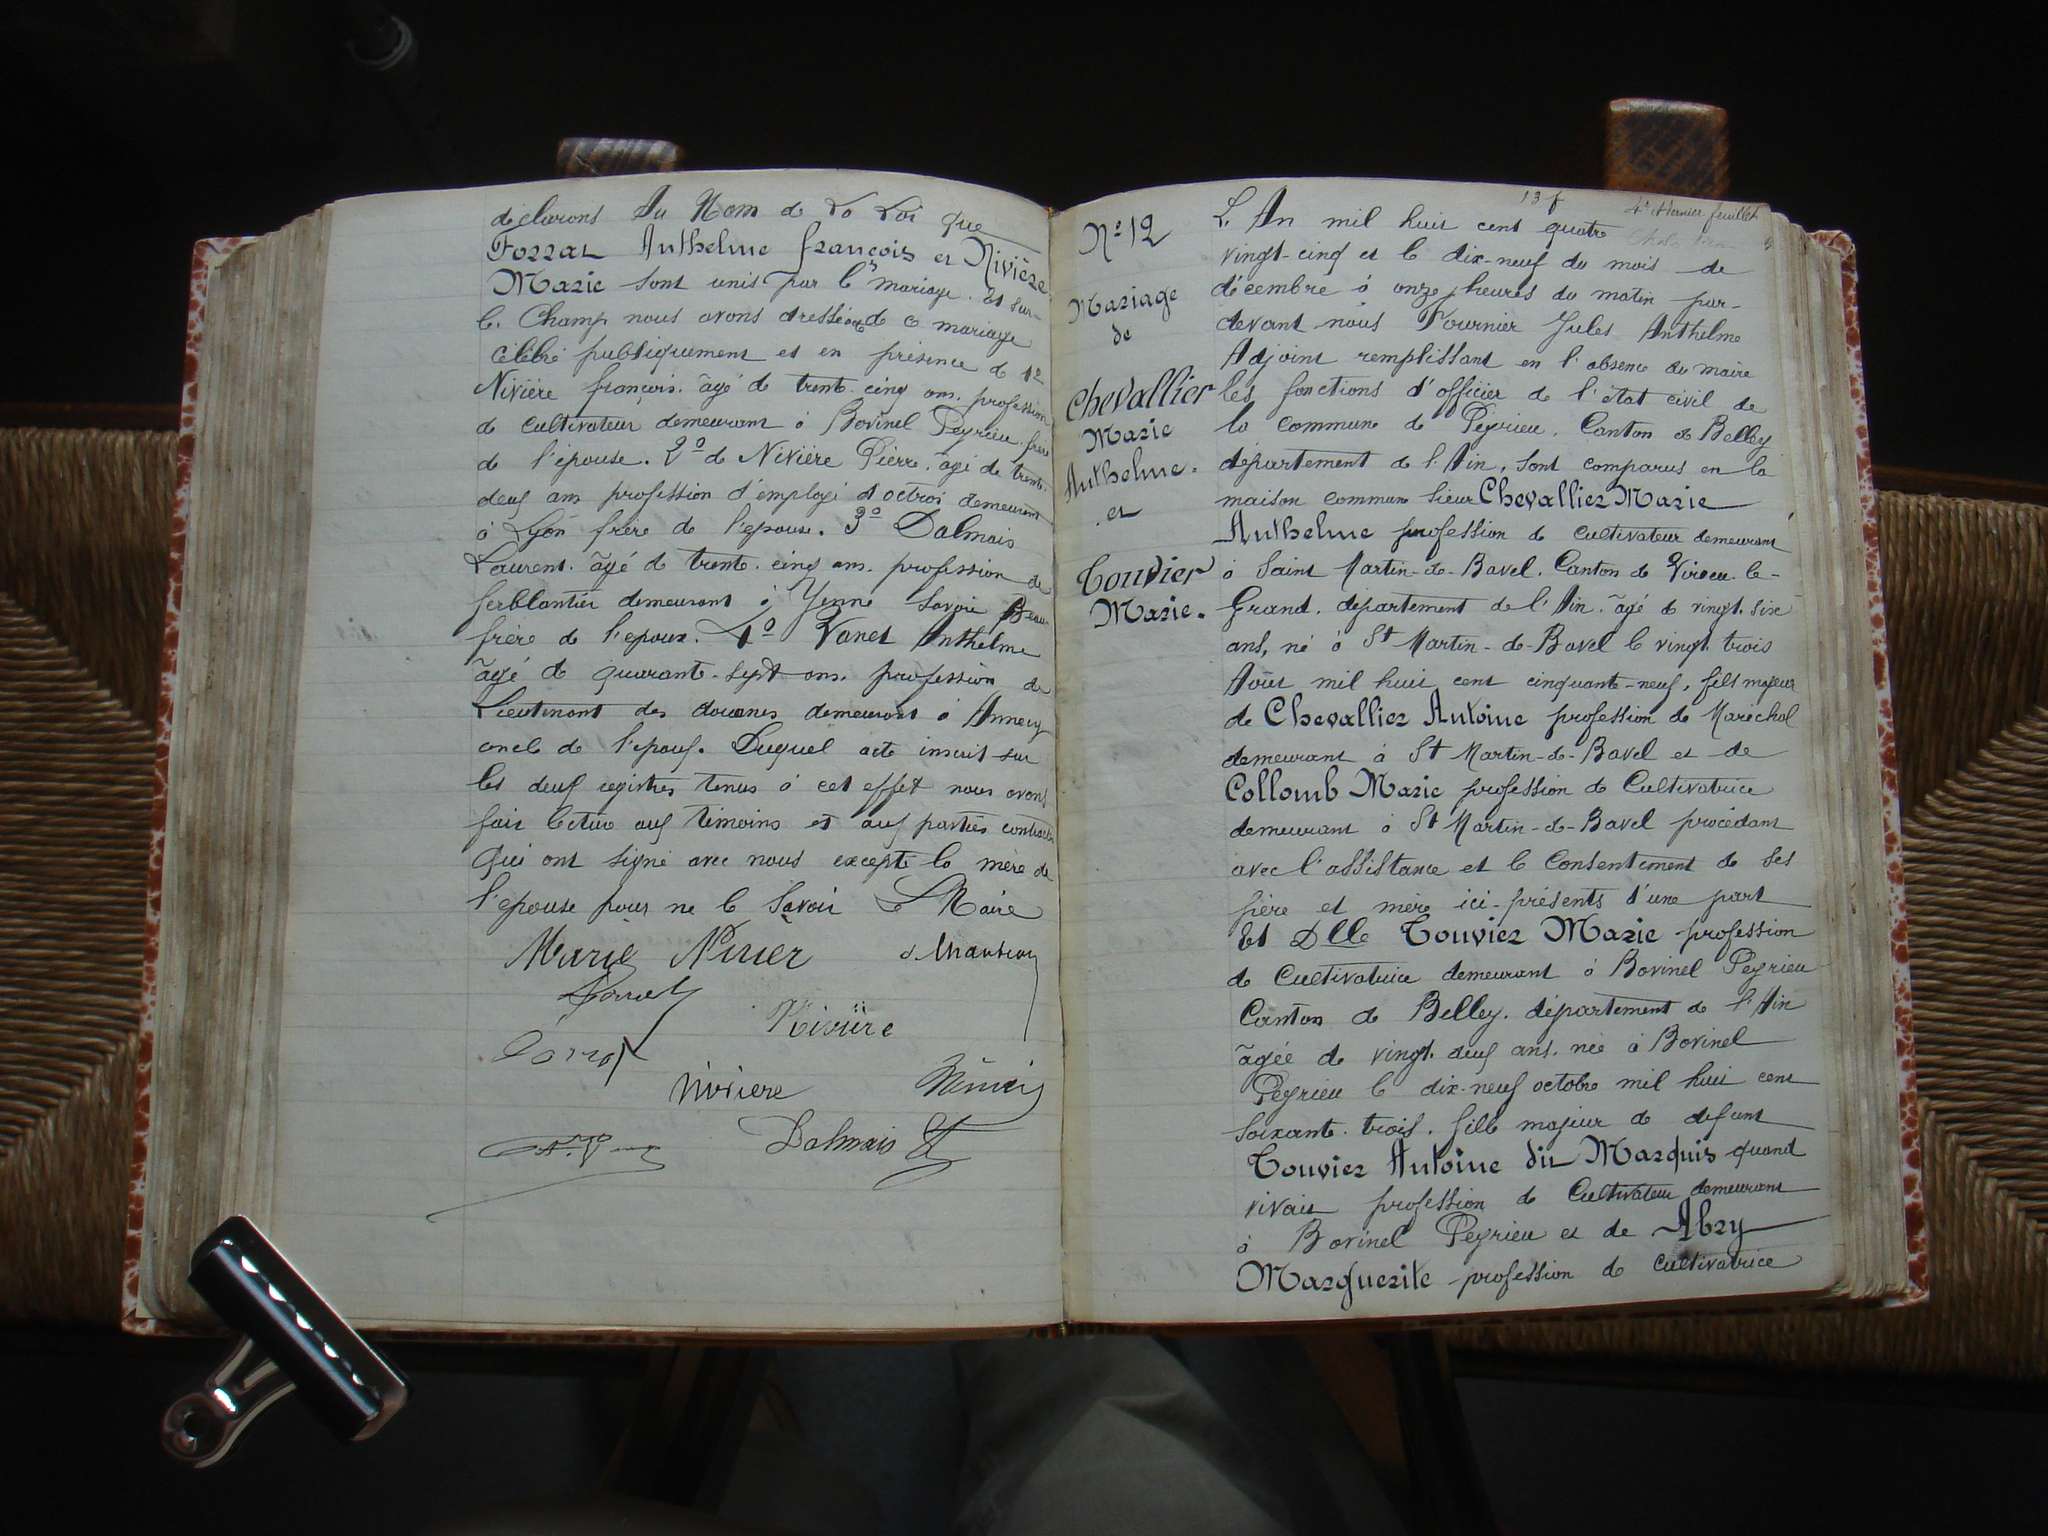 déclarons Au Nom de La Loi que
Forrat Anthelme françois et Nivière
Marie sont unis par le mariage. Et sur-
le Champ nous avons dressé acte de ce mariage
célébré publiquement et en présence de 1º
Nivière françois. âgé de trente-cinq ans. profession
de cultivateur demeurant à Bovinel Peyrieu frère
de l'épouse. 2º de Nivière Pierre. âgé de trente-
deux ans profession d'employé d'octroi demeurant
à Lyon frère de l'épouse. 3º Dalmais
Laurent. âgé de trente-cinq ans. profession de
ferblantier demeurant à Yenne Savoie Beau-
frère de l'epoux. 4º Vanet Anthelme
âgé de quarante-sept ans. profession de
Lieutenant des douanes demeurant à Annecy
oncle de l'épouse. Duquel acte inscrit sur
les deux registres tenus à cet effet nous avons
fait lecture aux témoins et aux parties contractantes
Qui ont signé avec nous excepté la mère de
l'epouse pour ne le Savoir Le Maire
Marie Nivier
Forrat
Nivière
Forrat
Niviere
Dalmais
Nº 12
Mariage
de
Chevallier
Marie
Anthelme.
et
Touvier
Marie.
13 f
4e et dernier feuillet
L'An mil huit cent quatre
vingt-cinq et le dix-neuf du mois de
décembre à onze heures du matin par-
devant nous Fournier Jules Anthelme
Adjoint remplissant en l'absence du maire
les fonctions d'officier de l'état civil de
la commune de Peyrieu. Canton de Belley
département de l'Ain, sont comparus en la
maison commune sieur Chevallier Marie
Anthelme profession de cultivateur demeurant
à Saint Martin-de-Bavel. Canton de Virieu-le-
Grand. département de l'Ain. âgé de vingt-six
ans, né à St Martin-de-Bavel le vingt-trois
Août mil huit cent cinquante-neuf, fils majeur
de Chevallier Antoine profession de Maréchal
demeurant à St Martin-de-Bavel et de
Collomb Marie profession de Cultivatrice
demeurant à St Martin-de-Bavel procédant
avec l'assistance et le Consentement de ses
père et mère ici-présents d'une part
Et Dlle Touvier Marie profession
de Cultivatrice demeurant à Bovinel Peyrieu
Canton de Belley. département de l'Ain
âgée de vingt-deux ans. née à Bovinel
Peyrieu le dix-neuf octobre mil huit cent
soixante-trois. fille majeur de defunt
Touvier Antoine dit Marquis quand
vivait profession de Cultivateur demeurant
à Bovinel Peyrieu et de Abry
Marguerite profession de cultivatrice